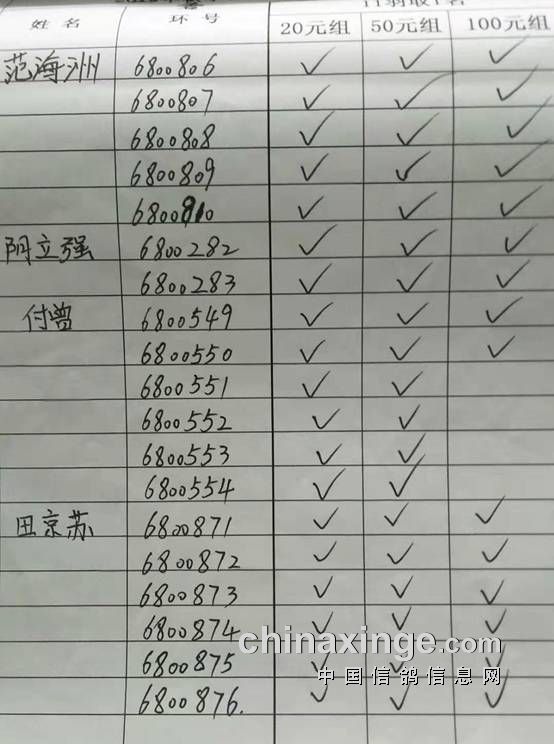 姓名 环号 20元组 50元组 100元组
范海洲 6800806 ✓ ✓ ✓
6800807 ✓ ✓ ✓
6800808 ✓ ✓ ✓
6800809 ✓ ✓ ✓
6800810 ✓ ✓ ✓
阴立强 6800282 ✓ ✓ ✓
6800283 ✓ ✓ ✓
付曾 6800549 ✓ ✓ ✓
6800550 ✓ ✓ ✓
6800551 ✓ ✓
6800552 ✓ ✓
6800553 ✓ ✓
6800554 ✓ ✓
田京苏 6800871 ✓ ✓ ✓
6800872 ✓ ✓ ✓
6800873 ✓ ✓ ✓
6800874 ✓ ✓ ✓
chinaxinge.com
6800875 ✓ ✓ ✓
中国信鸽信息网
6800876. ✓ ✓ ✓